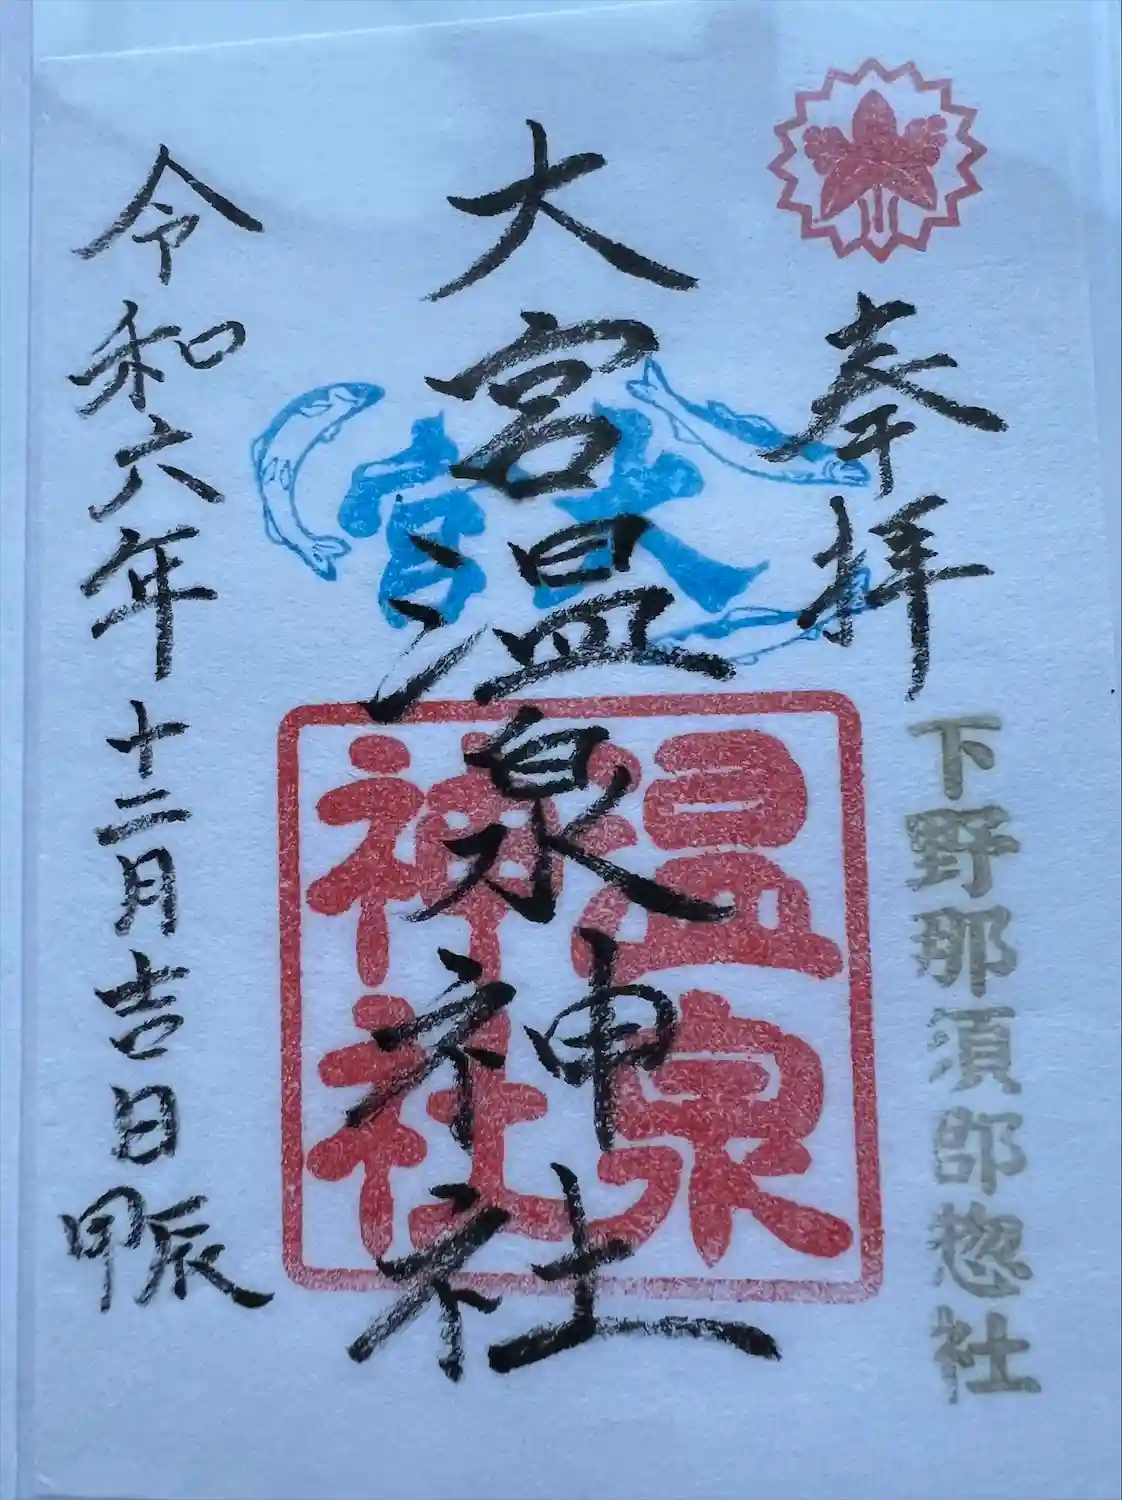 奉拝
下野那須郡惣社
大宮温泉神社
大宮
温泉神社
令和六年十二月吉日甲辰